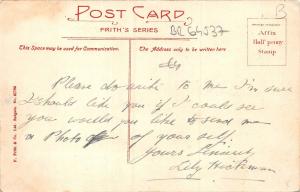 POST CARD
FRITH'S SERIES
BR 64537
B
Affix
Half penny
Stamp
This Space may be used for Communication.
The Address only to be written here
Please do write to me I'm sure
I should like you if I could see
you would you like to send me
a Photo of your self.
Yours Sincerely
Lily
F. Frith & Co. Ltd. Reigate.